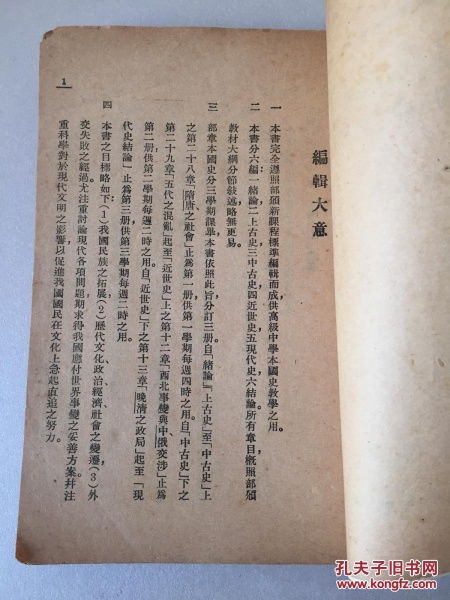 編輯大意
一 本書完全遵照部頒新課程標準編輯而成供高級中學本國史教學之用。
二 本書分六編一緒論二上古史三中古史四近世史五現代史六結論所有章目概照部頒
教材大綱分節敍述略無更易。
三 部章本國史分三學期課畢本書依照此旨分訂三册自「緒論」「上古史」至「中古史」上
之第二十八章「隋唐之社會」止爲第一册供第一學期每週四時之用。自「中古史」下之
第二十九章「五代之混亂」起至「近世史」上之第十二章「西北事變與中俄交涉」止爲
第二册供第二學期每週二時之用自「近世史」下之第十三章「晚清之政局」起至「現
代史結論」止爲第三册供第三學期每週二時之用。
四 本書之目標略如下(1)我國民族之拓展(2)歷代文化政治經濟社會之變遷(3)外
交失敗之經過尤注重討論現代各項問題期求得我國應付世界事變之妥善方案幷注
重科學對於現代文明之影響以促進我國國民在文化上急起直追之努力。
1
孔夫子旧书网
www.kongfz.com